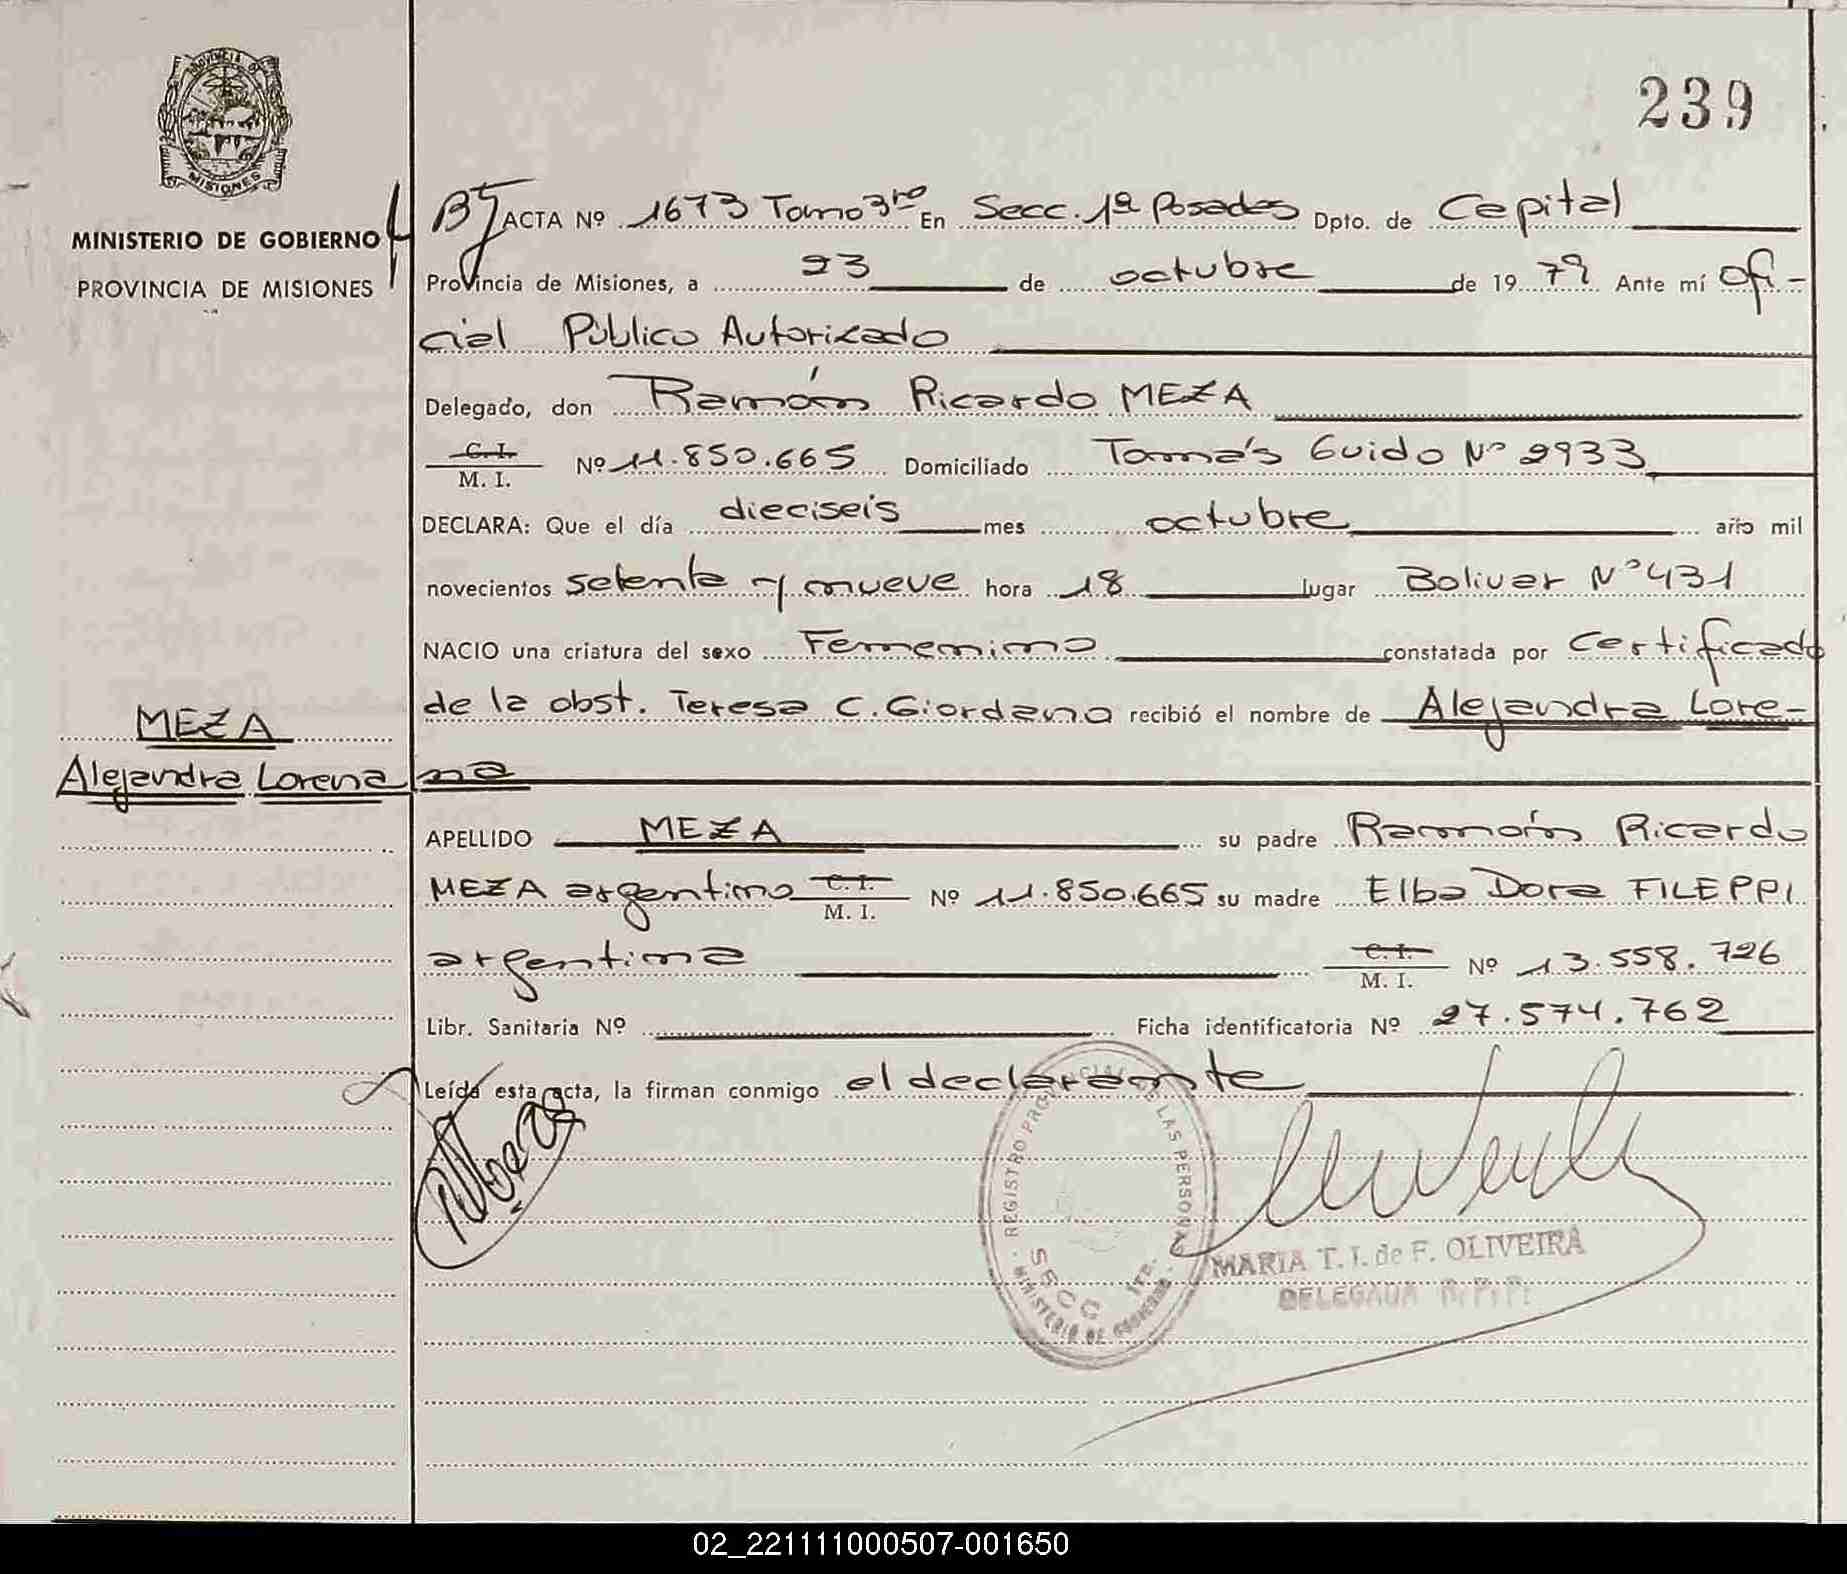 239
PROVINCIA DE
MISIONES
MINISTERIO DE GOBIERNO
PROVINCIA DE MISIONES
ACTA Nº 1673 Tomo 3ro En Secc. 1ª Posadas Dpto. de Capital
Provincia de Misiones, a 23 de octubre de 1979 Ante mí Ofi-
cial Público Autorizado
Delegado, don Ramón Ricardo MEZA
C. I.
M. I. Nº 11.850.665 Domiciliado Tomás Guido Nº 2933
DECLARA: Que el día dieciseis mes octubre año mil
novecientos setenta y nueve hora 18 lugar Bolivar Nº 431
NACIO una criatura del sexo Femenino constatada por Certificado
de la obst. Teresa C. Giordano recibió el nombre de Alejandra Lore-
na
MEZA
Alejandra Lorena
APELLIDO MEZA su padre Ramón Ricardo
MEZA argentino C. I. M. I. Nº 11.850.665 su madre Elba Dora FILEPPI
argentina C. I. M. I. Nº 13.558.726
Libr. Sanitaria Nº Ficha identificatoria Nº 27.574.762
Leída esta acta, la firman conmigo el declarante
REGISTRO PROVINCIAL DE LAS PERSONAS
MINISTERIO DE GOBIERNO
MARIA T. I. de F. OLIVEIRA
DELEGADA R.P.P.
02_221111000507-001650